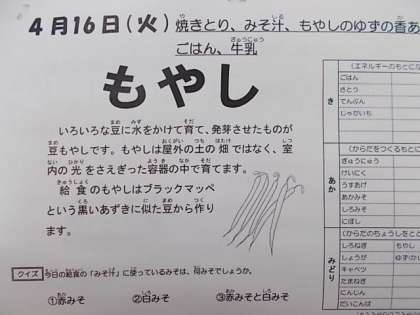 ４月16日（火）焼きとり、みそ汁、もやしのゆずの香あ
ごはん、牛乳
もやし
いろいろな豆に水をかけて育て、発芽させたものが
豆もやしです。もやしは屋外の土の畑ではなく、室
内の光をさえぎった容器の中で育てます。
給食のもやしはブラックマッペ
という黒いあずきに似た豆から作り
ます。
クイズ 今日の給食の「みそ汁」に使っているみそは、何みそでしょうか。
①赤みそ ②白みそ ③赤みそと白みそ
（エネルギーのもとにな
き
ごはん
さとう
でんぷん
じゃがいも
（からだをつくるもとに
あか
ぎゅうにゅう
けいにく
うすあげ
あかみそ
しろみそ
にぼし
（からだのちょうしをとと
みどり
しろねぎ もやし
しょうが ゆず
キャベツ
たまねぎ
にんじん
だいこんば